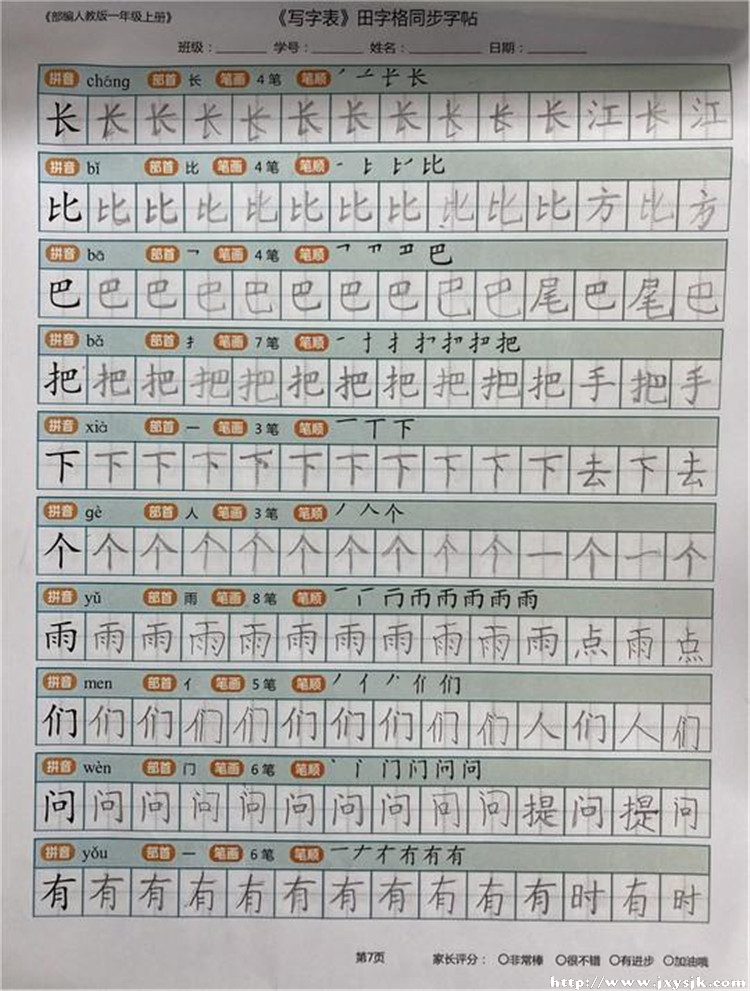 《部编人教版一年级上册》
《写字表》田字格同步字帖
班级：______ 学号：______ 姓名：______ 日期：______
拼音 cháng 部首 长 笔画 4笔 笔顺
长长长长长长长长长长长江长江
拼音 bǐ 部首 比 笔画 4笔 笔顺
比比比比比比比比比比比方比方
拼音 bā 部首 ㇕ 笔画 4笔 笔顺
巴巴巴巴巴巴巴巴巴巴尾巴尾巴
拼音 bǎ 部首 扌 笔画 7笔 笔顺
把把把把把把把把把把把手把手
拼音 xià 部首 一 笔画 3笔 笔顺
下下下下下下下下下下下去下去
拼音 gè 部首 人 笔画 3笔 笔顺
个个个个个个个个个个一个一个
拼音 yǔ 部首 雨 笔画 8笔 笔顺
雨雨雨雨雨雨雨雨雨雨雨点雨点
拼音 men 部首 亻 笔画 5笔 笔顺
们们们们们们们们们们人们人们
拼音 wèn 部首 门 笔画 6笔 笔顺
问问问问问问问问问问提问提问
拼音 yǒu 部首 一 笔画 6笔 笔顺
有有有有有有有有有有有时有时
第7页 家长评分： ○非常棒 ○很不错 ○有进步 ○加油哦
http://www.jxysjk.com